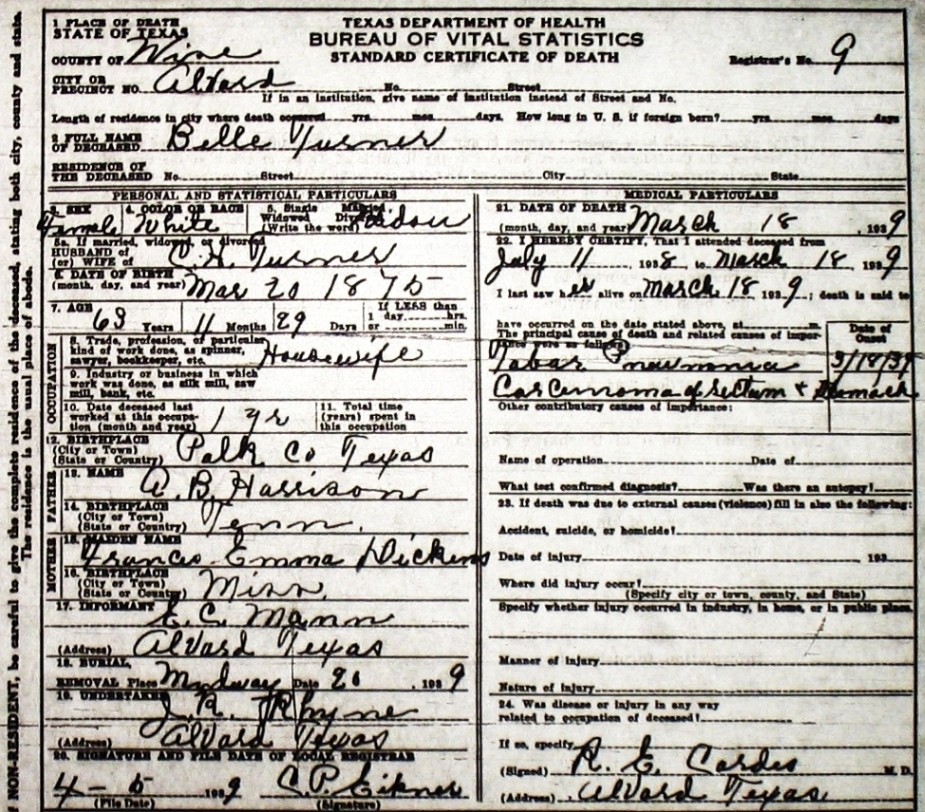 NON-RESIDENT, be careful to give the complete residence of the deceased, stating both city, county and state.
The residence is the usual place of abode.
TEXAS DEPARTMENT OF HEALTH
BUREAU OF VITAL STATISTICS
STANDARD CERTIFICATE OF DEATH
1 PLACE OF DEATH
STATE OF TEXAS
COUNTY OF Wise
Registrar's No. 9
CITY OR
PRECINCT NO. Alvard No. Street
If in an institution, give name of institution instead of Street and No.
Length of residence in city where death occurred yrs. mos. days. How long in U. S. if foreign born? yrs. mos. days
2 FULL NAME
OF DECEASED Belle Turner
RESIDENCE OF
THE DECEASED No. Street City State
PERSONAL AND STATISTICAL PARTICULARS
3. SEX 4. COLOR OR RACE 5. Single Married
Widowed Divorced
(Write the word)
Female White Widow
5a. If married, widowed, or divorced
HUSBAND OF
(or) WIFE OF C. H. Turner
6. DATE OF BIRTH
(month, day, and year) Mar 20 1875
7. AGE
63 Years 11 Months 29 Days
If LESS than
1 day hrs.
or min.
OCCUPATION
8. Trade, profession, or particular
kind of work done, as spinner,
sawyer, bookkeeper, etc. Housewife
9. Industry or business in which
work was done, as silk mill, saw
mill, bank, etc.
10. Date deceased last
worked at this occupa-
tion (month and year) 1 yr
11. Total time
(years) spent in
this occupation
12. BIRTHPLACE
(City or Town)
(State or Country) Polk Co Texas
FATHER
13. NAME A. B. Harrison
14. BIRTHPLACE
(City or Town)
(State or Country) Tenn.
MOTHER
15. MAIDEN NAME
Frances Emma Dickens
16. BIRTHPLACE
(City or Town)
(State or Country) Miss.
17. INFORMANT E. C. Mann
(Address) Alvard Texas
18. BURIAL,
REMOVAL Place Mydway Date 20, 1939
19. UNDERTAKER
J. R. Rhyne
(Address) Alvard Texas
20. SIGNATURE AND FILE DATE OF LOCAL REGISTRAR
4-5 1939 C. P.
(File Date) (Signature)
MEDICAL PARTICULARS
21. DATE OF DEATH
(month, day, and year) March 18, 1939
22. I HEREBY CERTIFY, That I attended deceased from
July 11 1938, to March 18, 1939
I last saw her alive on March 18 1939; death is said to
have occurred on the date stated above, at m.
The principal cause of death and related causes of impor-
tance were as follows:
Date of
Onset
Lobar Pneumonia 3/14/39
Carcinoma of rectum & stomach
Other contributory causes of importance:
Name of operation Date of
What test confirmed diagnosis? Was there an autopsy?
23. If death was due to external causes (violence) fill in also the following:
Accident, suicide, or homicide?
Date of injury 193
Where did injury occur?
(Specify city or town, county, and State)
Specify whether injury occurred in industry, in home, or in public place.
Manner of injury
Nature of injury
24. Was disease or injury in any way
related to occupation of deceased?
If so, specify
(Signed) R. E. M. D.
(Address) Alvard Texas